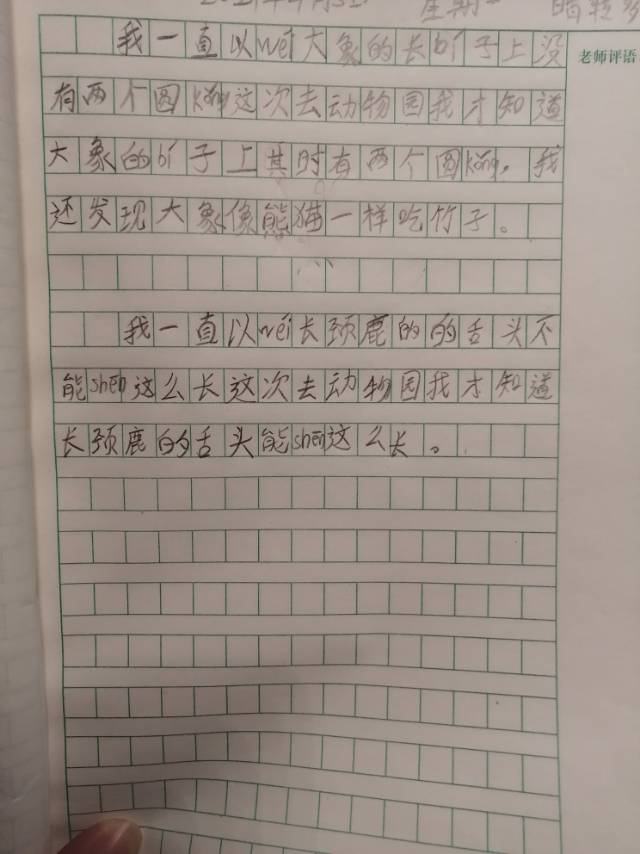 星期一
我一直以wei大象的长bi子上没
老师评语
有两个圆kong这次去动物园我才知道
大象的bi子上其时有两个圆kong，我
还发现大象像熊猫一样吃竹子。
我一直以wei长颈鹿的的舌头不
能shen这么长这次去动物园我才知道
长颈鹿的舌头能shen这么长。